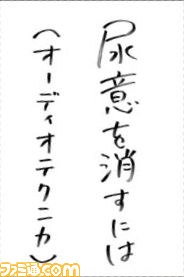 尿意を消すには
(オーディオテクニカ)
ファミ通.com